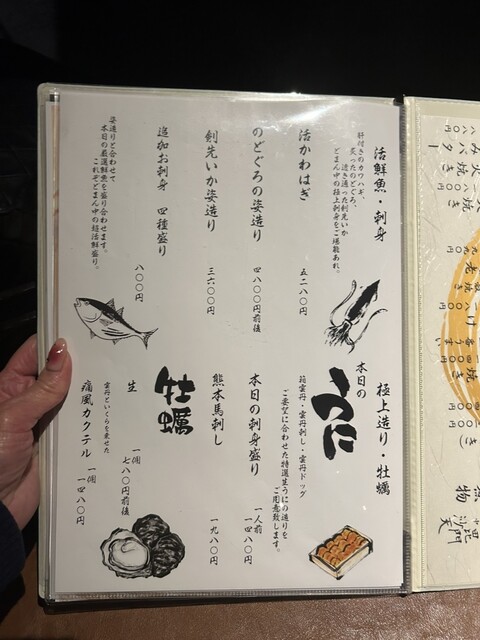 活鮮魚・刺身
肝付きのカワハギ、
炙ったのどぐろ、
透き通った剣先いか
どまん中の極上刺身をご堪能あれ。
活かわはぎ
五二八〇円
のどぐろの姿造り
四八〇〇円前後
剣先いか姿造り
三六〇〇円
追加お刺身 四種盛り
八〇〇円
姿造りと合わせて
本日の厳選鮮魚を盛り合わせます。
これぞどまん中の超活鮮盛り。
極上造り・牡蠣
本日の
うに
箱雲丹・雲丹刺し・雲丹ドッグ
ご要望に合わせた特選生うにの造りを
ご用意致します。
本日の刺身盛り
一人前
一四八〇円
熊本馬刺し
一九八〇円
牡蠣
生
一個
七八〇円前後
雲丹といくらを乗せた
痛風カクテル
一個
一四八〇円